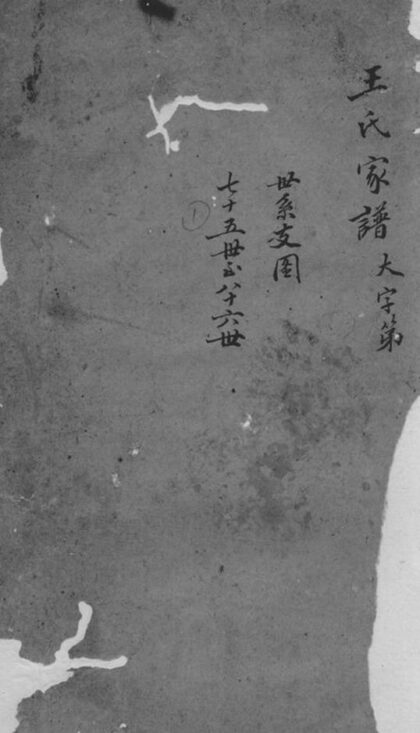 王氏家譜大字第
世系支图
七十五世至八十六世
①